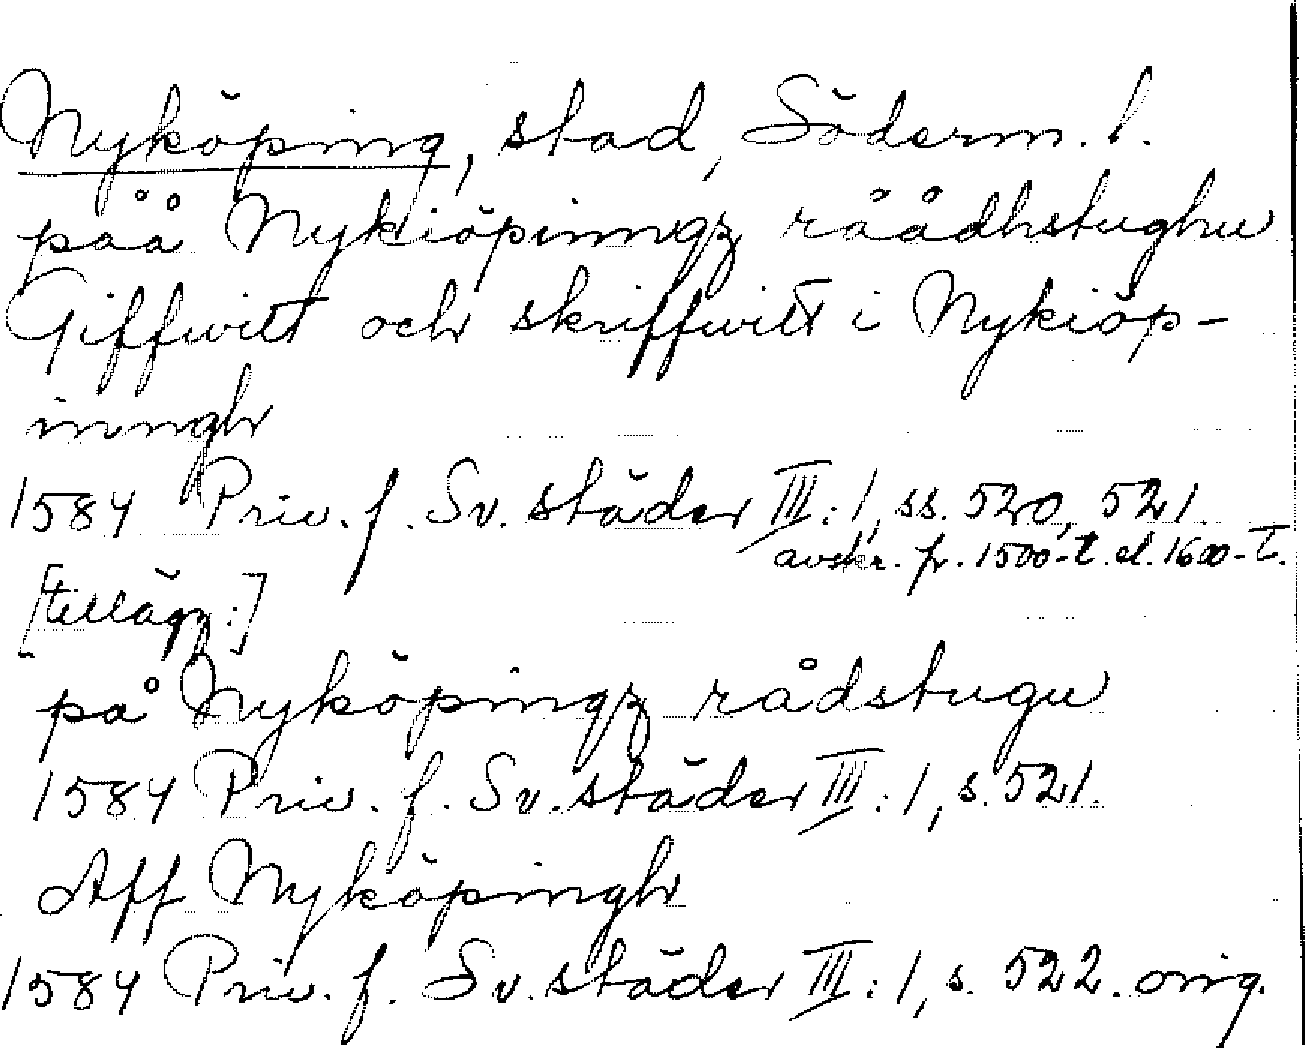 Nyköping, stad, Söderm. l.
påå Nykiöpinngz råådhstughu
Giffwitt och skriffwitt i Nykiöp-
inngh
1584 Priv. f. Sv. städer III:1, ss. 520, 521
avskr. fr. 1500-t. el. 1600-t.
[tillägg:]
på Nyköpingz rådstugu
1584 Priv. f. Sv. städer III:1, s. 521.
Aff Nyköpingh
1584 Priv. f. Sv. städer III:1, s. 522. orig.